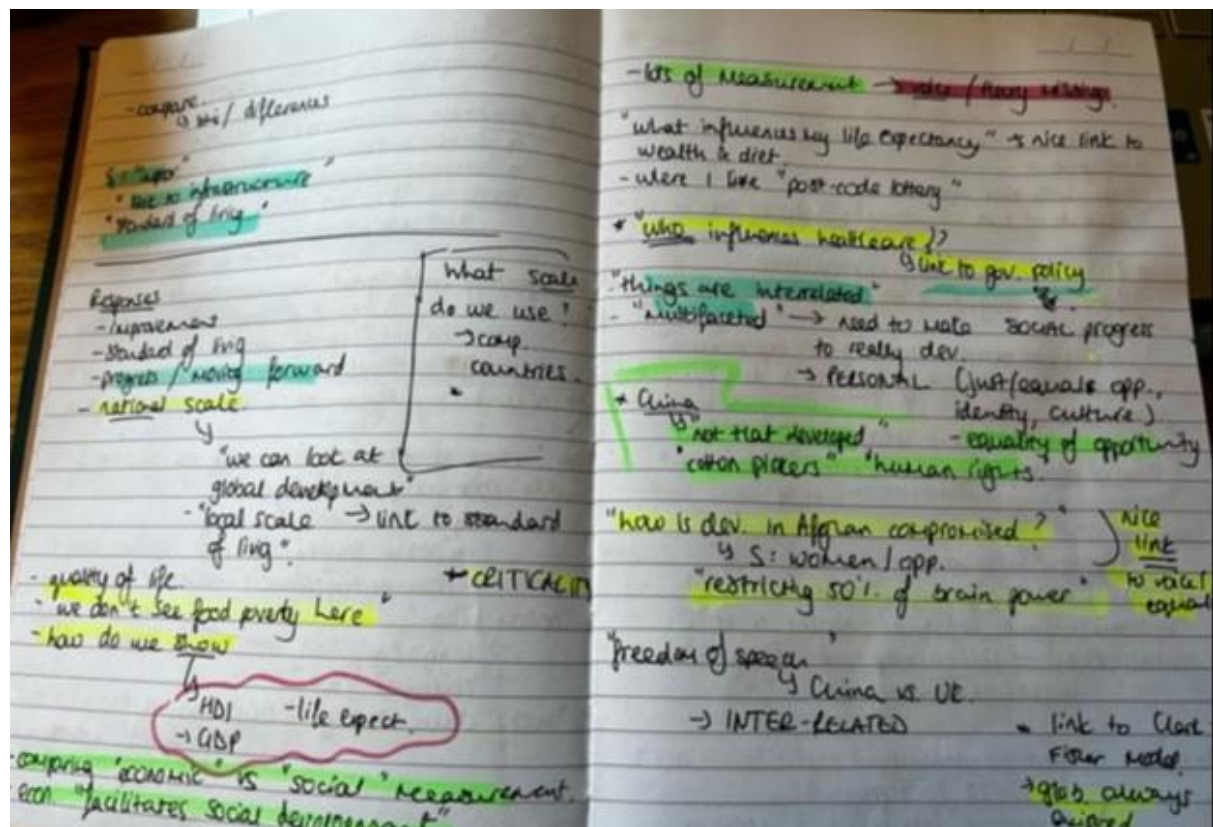 - compare
↳ / differences
"link to infrastructure"
"standard of living"
Responses
- improvement
- standard of living
- progress / moving forward
- national scale
"we can look at
global development"
- "local scale → link to standard
of living".
What scale
do we use?
→ comp.
countries.
- quality of life.
* CRITICALITY
- "we don't see food poverty here"
- how do we show
↳ HDI - life expect.
→ GDP
- comparing "economic" vs "social" measurement.
- econ. "facilitates social development"
- lots of measurement → voice / missing.
"what influences my life expectancy" ↳ nice link to
wealth & diet.
- where I live "post-code lottery"
* "who influences healthcare"??
↳ link to gov. policy
"things are interrelated"
- "multifaceted" → need to make SOCIAL progress
to really dev.
→ PERSONAL (just/equal opp.,
identity, culture)
* China
↳ "not that developed," - equality of opportunity
"cotton pickers" "human rights."
"how is dev. in Afghan compromised?"
↳ S: women / opp.
"restricting 50% of brain power"
nice
link
to voice/
equal
"freedom of speech"
↳ China vs. UK.
→ INTER-RELATED
link to Clark
Fisher Model.
→ always